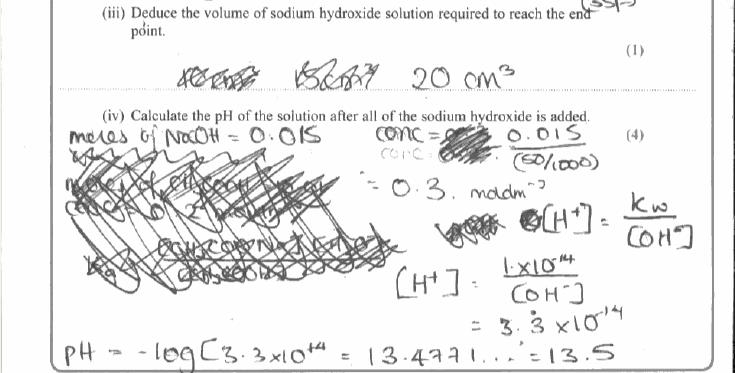 (iii) Deduce the volume of sodium hydroxide solution required to reach the end
point.
(1)
20 cm³
(iv) Calculate the pH of the solution after all of the sodium hydroxide is added.
(4)
moles of NaOH = 0.015
conc = 0.015
(50/1000)
= 0.3. moldm⁻³
[H⁺] = Kw
[OH⁻]
[H⁺] = 1×10⁻¹⁴
[OH⁻]
= 3.3̇ ×10⁻¹⁴
pH = -log[3.3×10⁻¹⁴ = 13.4771... = 13.5